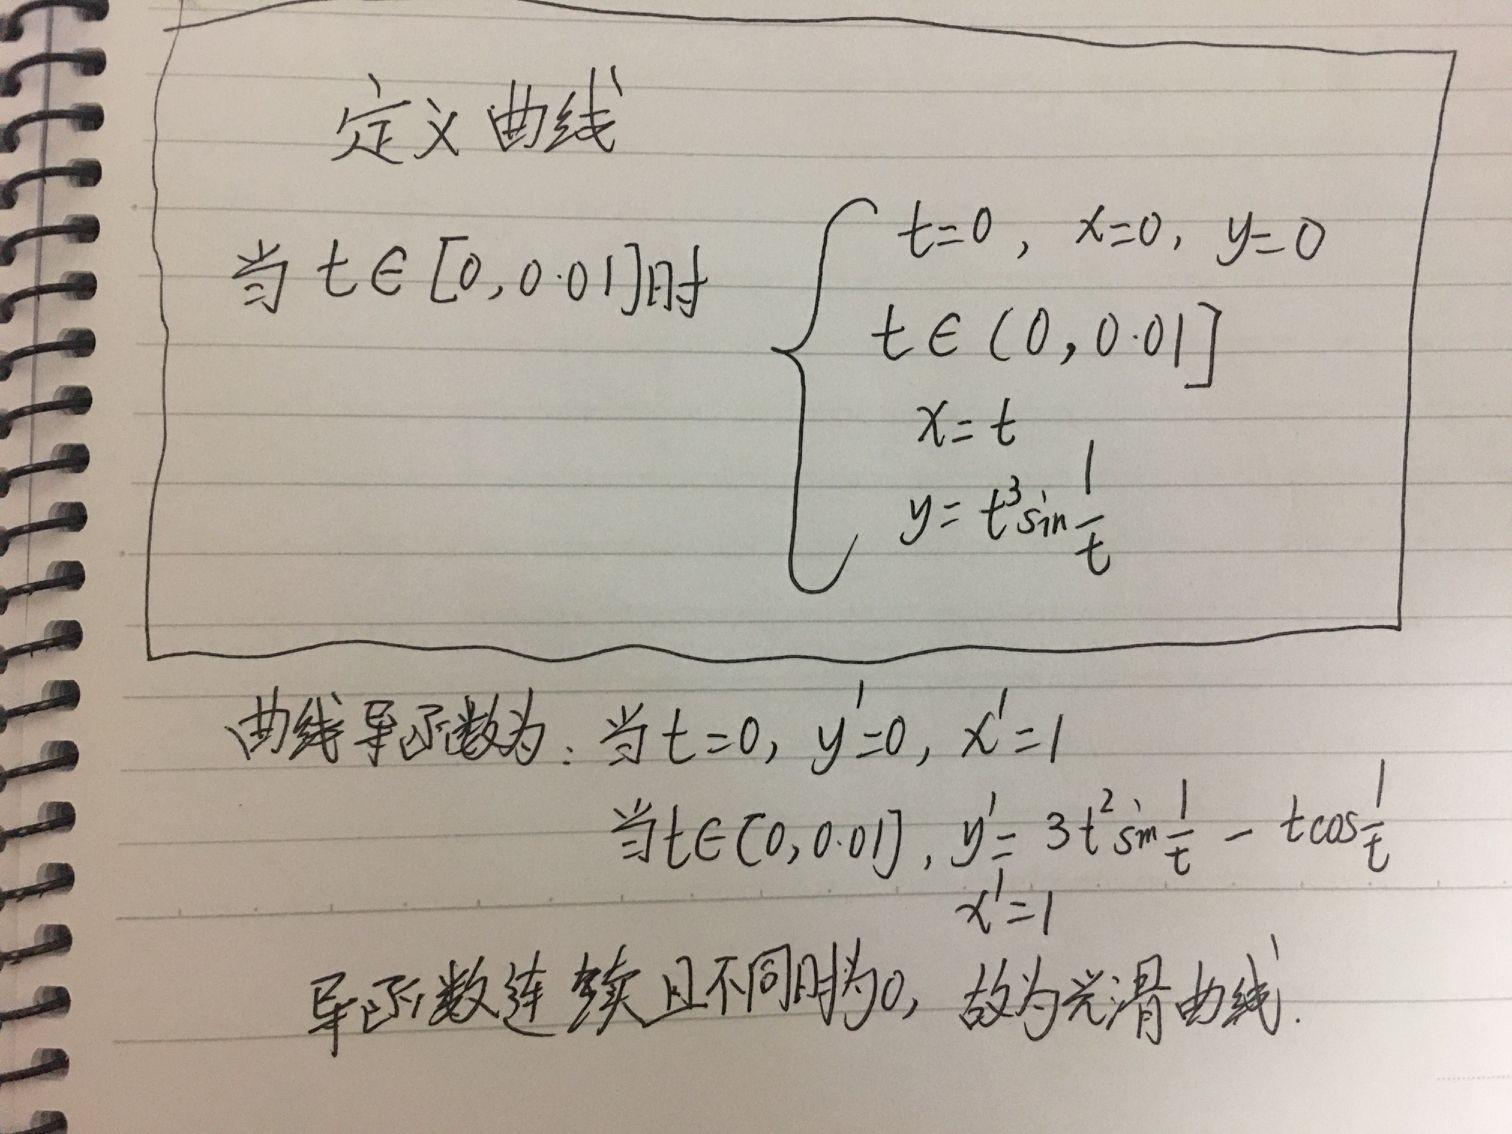 定义曲线
当 t∈[0,0.01]时
t=0, x=0, y=0
t∈(0,0.01]
x=t
y=t³sin 1/t
曲线导函数为: 当t=0, y'=0, x'=1
当t∈(0,0.01], y'= 3t²sin 1/t - tcos 1/t
x'=1
导函数连续且不同时为0, 故为光滑曲线.